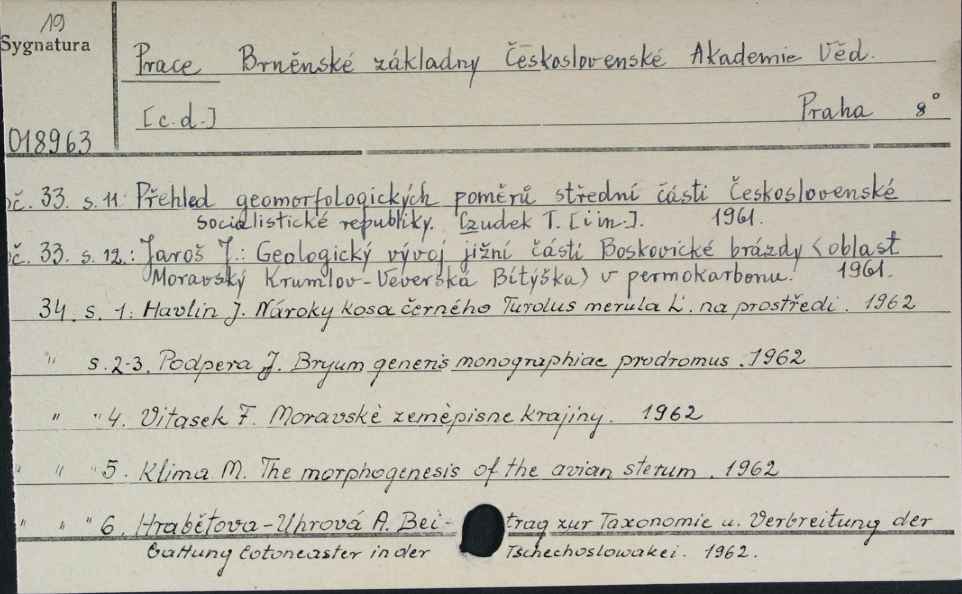 19
Sygnatura
Prace Brněnské základny Československé Akademie Věd.
[c.d.] Praha 8°
018963
č. 33. s. 11: Přehled geomorfologických poměrů střední části Československé
socialistické republiky. Czudek T. [i in.]. 1961.
č. 33. s. 12.: Jaroš J.: Geologický vývoj jižní části Boskovické brázdy <oblast
Moravský Krumlov-Veverská Bítýška) v permokarbonu. 1961.
34. s. 1: Havlin J. Nároky kosa černého Turolus merula L. na prostředi. 1962
" s. 2-3. Podpera J. Bryum generis monographiae prodromus. 1962
" " 4. Vitasek F. Moravskè zemèpisne krajiny. 1962
" " " 5. Klima M. The morphogenesis of the avian sterum. 1962
" " " 6. Hrabětova-Uhrová A. Bei-trag zur Taxonomie u. Verbreitung der
Gattung Cotoneaster in der Tschechoslowakei. 1962.